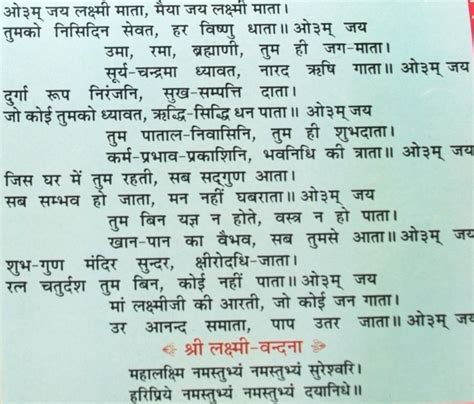 ओ३म् जय लक्ष्मी माता, मैया जय लक्ष्मी माता।
तुमको निसिदिन सेवत, हर विष्णु धाता॥ ओ३म् जय
उमा, रमा, ब्रह्माणी, तुम ही जग-माता।
सूर्य-चन्द्रमा ध्यावत, नारद ऋषि गाता॥ ओ३म् जय
दुर्गा रूप निरंजनि, सुख-सम्पत्ति दाता।
जो कोई तुमको ध्यावत, ऋद्धि-सिद्धि धन पाता॥ ओ३म् जय
तुम पाताल-निवासिनि, तुम ही शुभदाता।
कर्म-प्रभाव-प्रकाशिनि, भवनिधि की त्राता॥ ओ३म् जय
जिस घर में तुम रहती, सब सद्‌गुण आता।
सब सम्भव हो जाता, मन नहीं घबराता॥ ओ३म् जय
तुम बिन यज्ञ न होते, वस्त्र न हो पाता।
खान-पान का वैभव, सब तुमसे आता॥ ओ३म् जय
शुभ-गुण मंदिर सुन्दर, क्षीरोदधि-जाता।
रत्न चतुर्दश तुम बिन, कोई नहीं पाता॥ ओ३म् जय
मां लक्ष्मीजी की आरती, जो कोई जन गाता।
उर आनन्द समाता, पाप उतर जाता॥ ओ३म् जय
श्री लक्ष्मी-वन्दना
महालक्ष्मि नमस्तुभ्यं नमस्तुभ्यं सुरेश्वरि।
हरिप्रिये नमस्तुभ्यं नमस्तुभ्यं दयानिधे॥